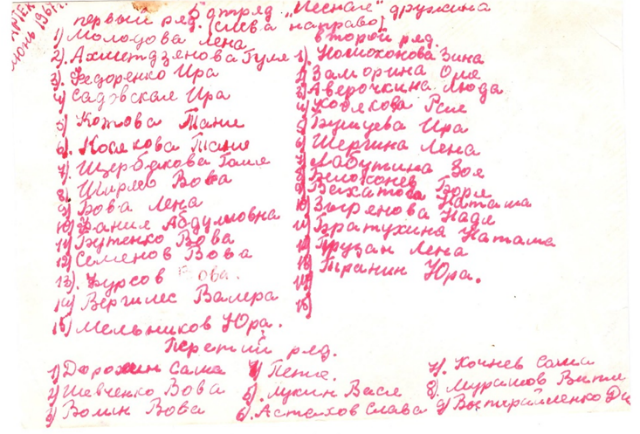 АРТЕК
июнь 196
5 отряд „Лесная" дружина
первый ряд. (слева направо)
1) Молодова Лена
2) Ахметдзянова Гуля
3) Федоренко Ира
4) Садовская Ира
5) Котова Таня
6) Косякова Таня
7) Щербакова Галя
8) Ширяев Вова
9) Бова Лена
10) Фания Абдуловна
11) Буженко Вова
12) Семёнов Вова
13) Бурсов Вова.
14) Вергилес Валера
15) Мельников Юра.
второй ряд.
1) Номоконова Зина
2) Заморина Оля
3) Аверочкина Люда
4) Кобякова Рая
5) Бушуева Ира
6) Шергина Лена
7) Лабутина Зоя
8) Белоконев Боря
9) Вахатова Наташа
10) Зырянова Надя
11) Братухина Наташа
12) Прузан Лена
13) Гранин Юра.
14)
15)
Третий ряд.
1) Дорохин Саша
2) Шевченко Вова
3) Волин Вова
4) Петя.
5) Лукин Вася
6) Астахов Слава
7) Кочнев Саша
8) Мурашов Витя
9)